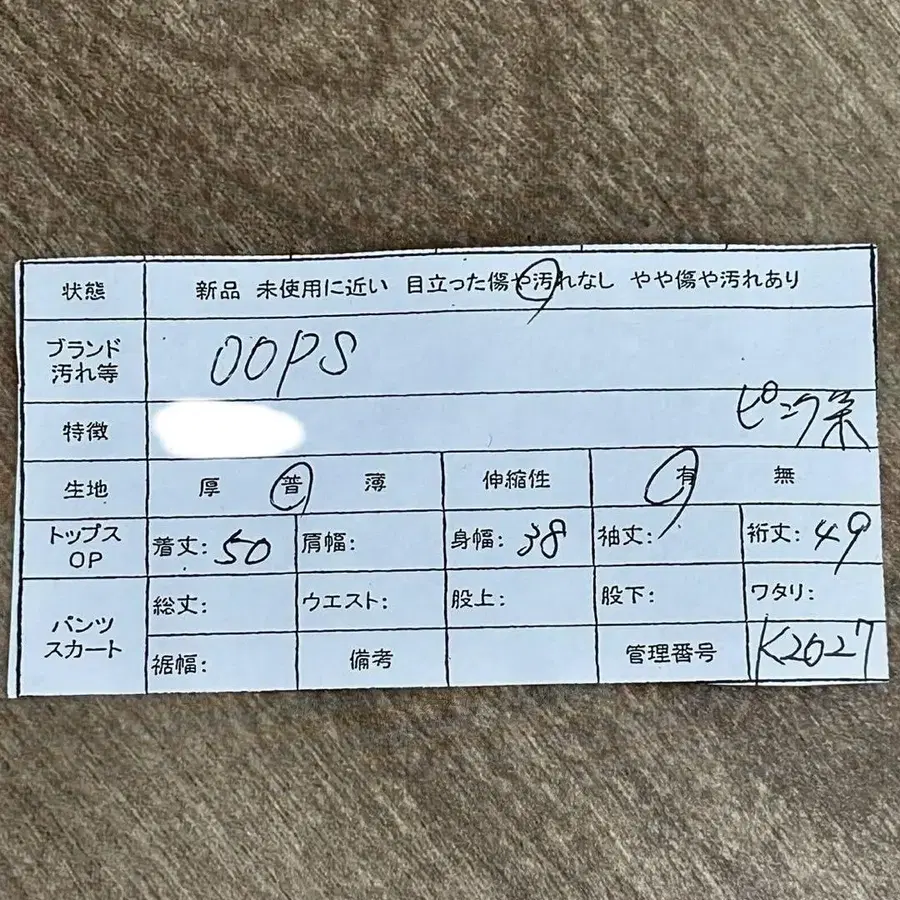 状態 新品 未使用に近い 目立った傷や汚れなし やや傷や汚れあり
ブランド
汚れ等 OOPS
特徴 ピンク系
生地 厚 普 薄 伸縮性 有 無
トップス
OP 着丈: 50 肩幅: 身幅: 38 袖丈: 裄丈: 49
パンツ
スカート 総丈: ウエスト: 股上: 股下: ワタリ:
裾幅: 備考 管理番号 K2027